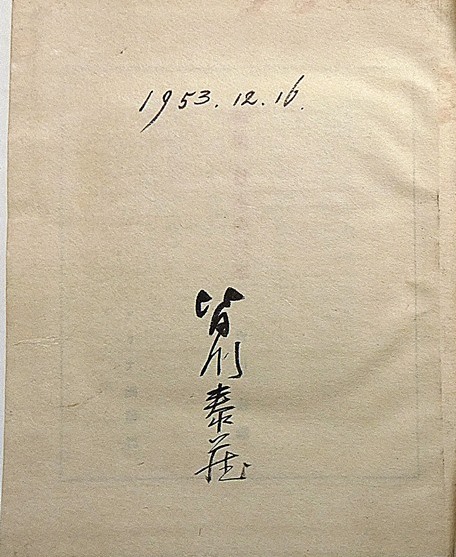 1953.12.16.
皆川泰蔵